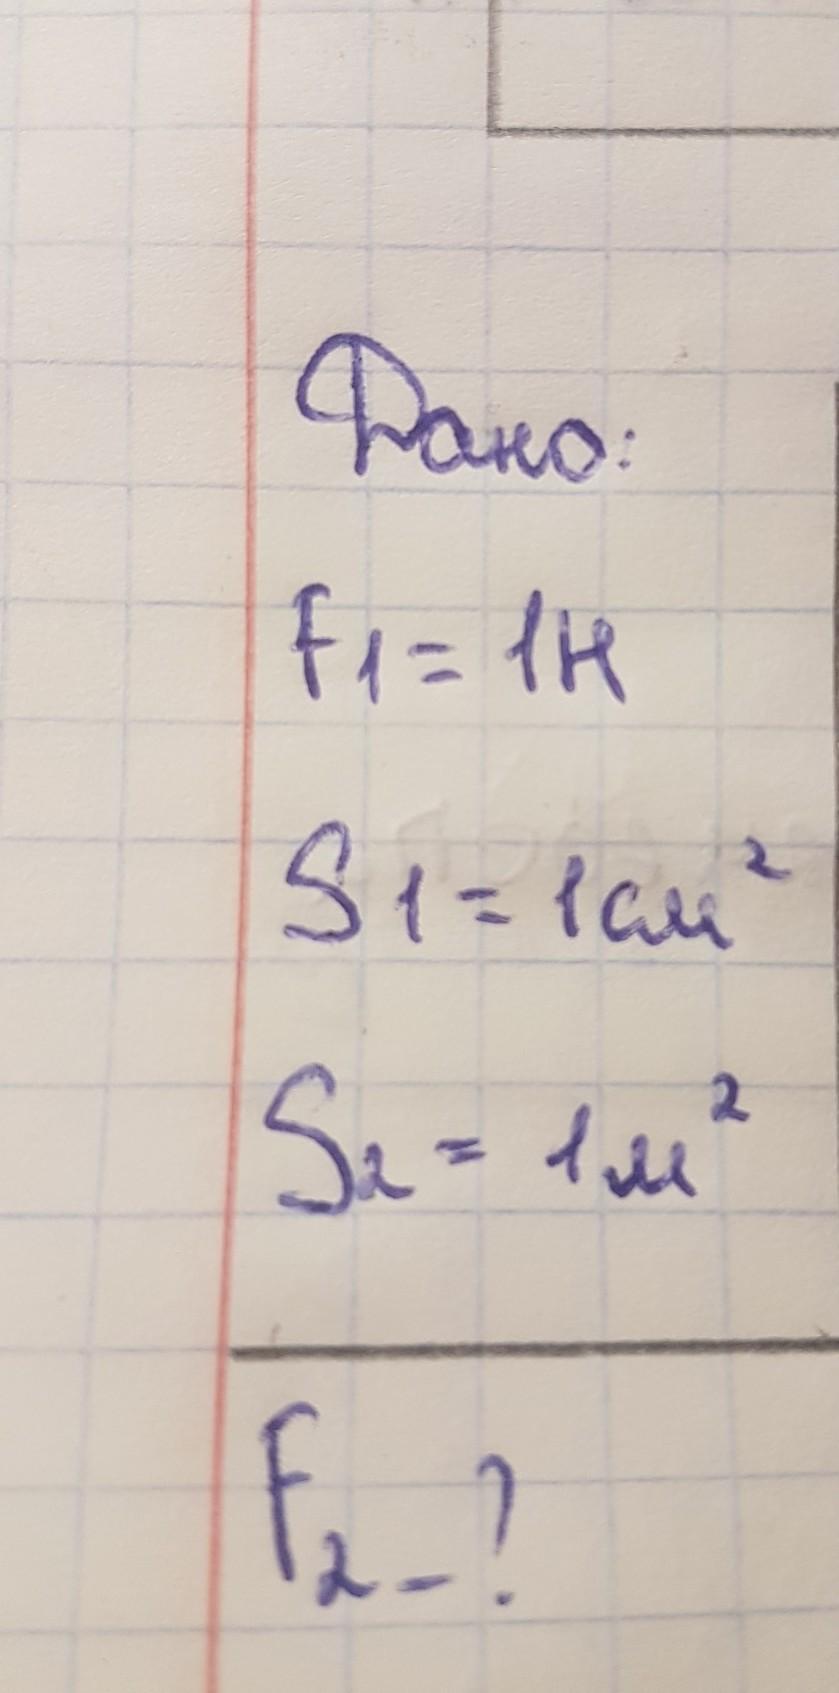 Дано:
F1 = 1Н
S1 = 1см²
S2 = 1м²
F2 - ?